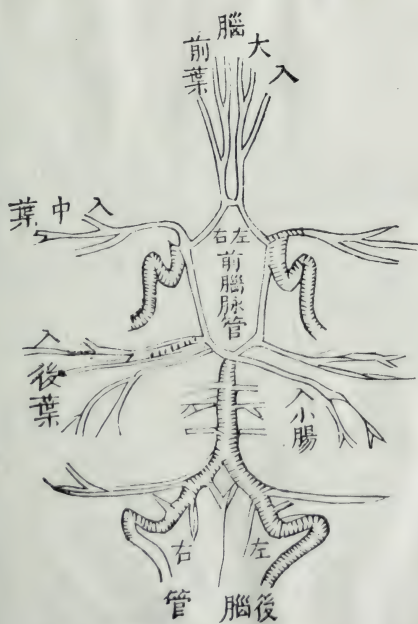 入大腦前葉
入中葉
左右
前腦脉管
入後葉
入小腸
左
右
後腦管